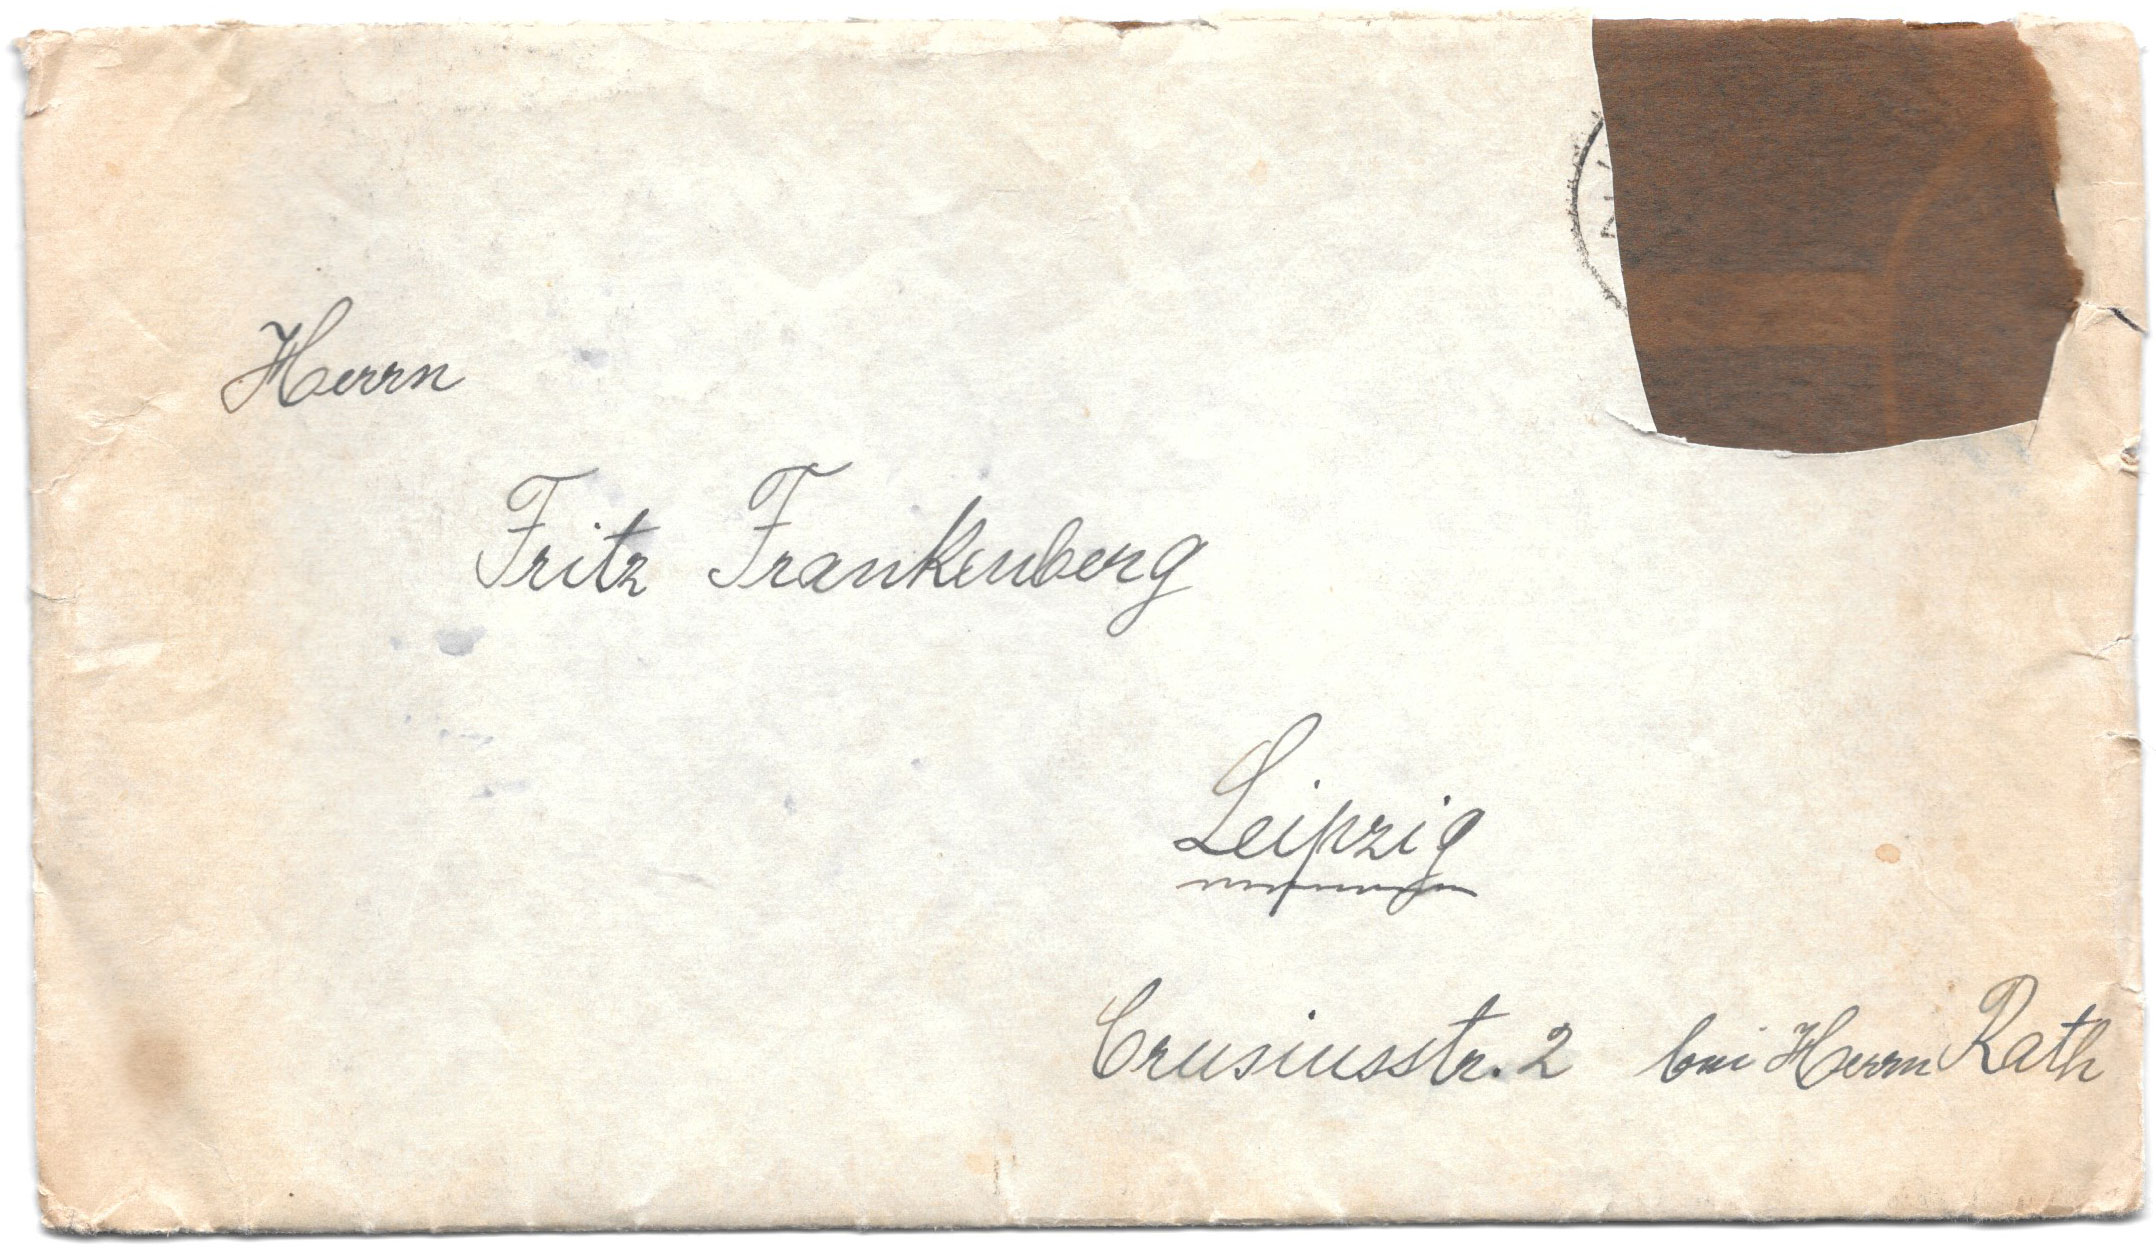 Herrn
Fritz Frankenberg
Leipzig
Crusiusstr. 2 bei Herrn Rath